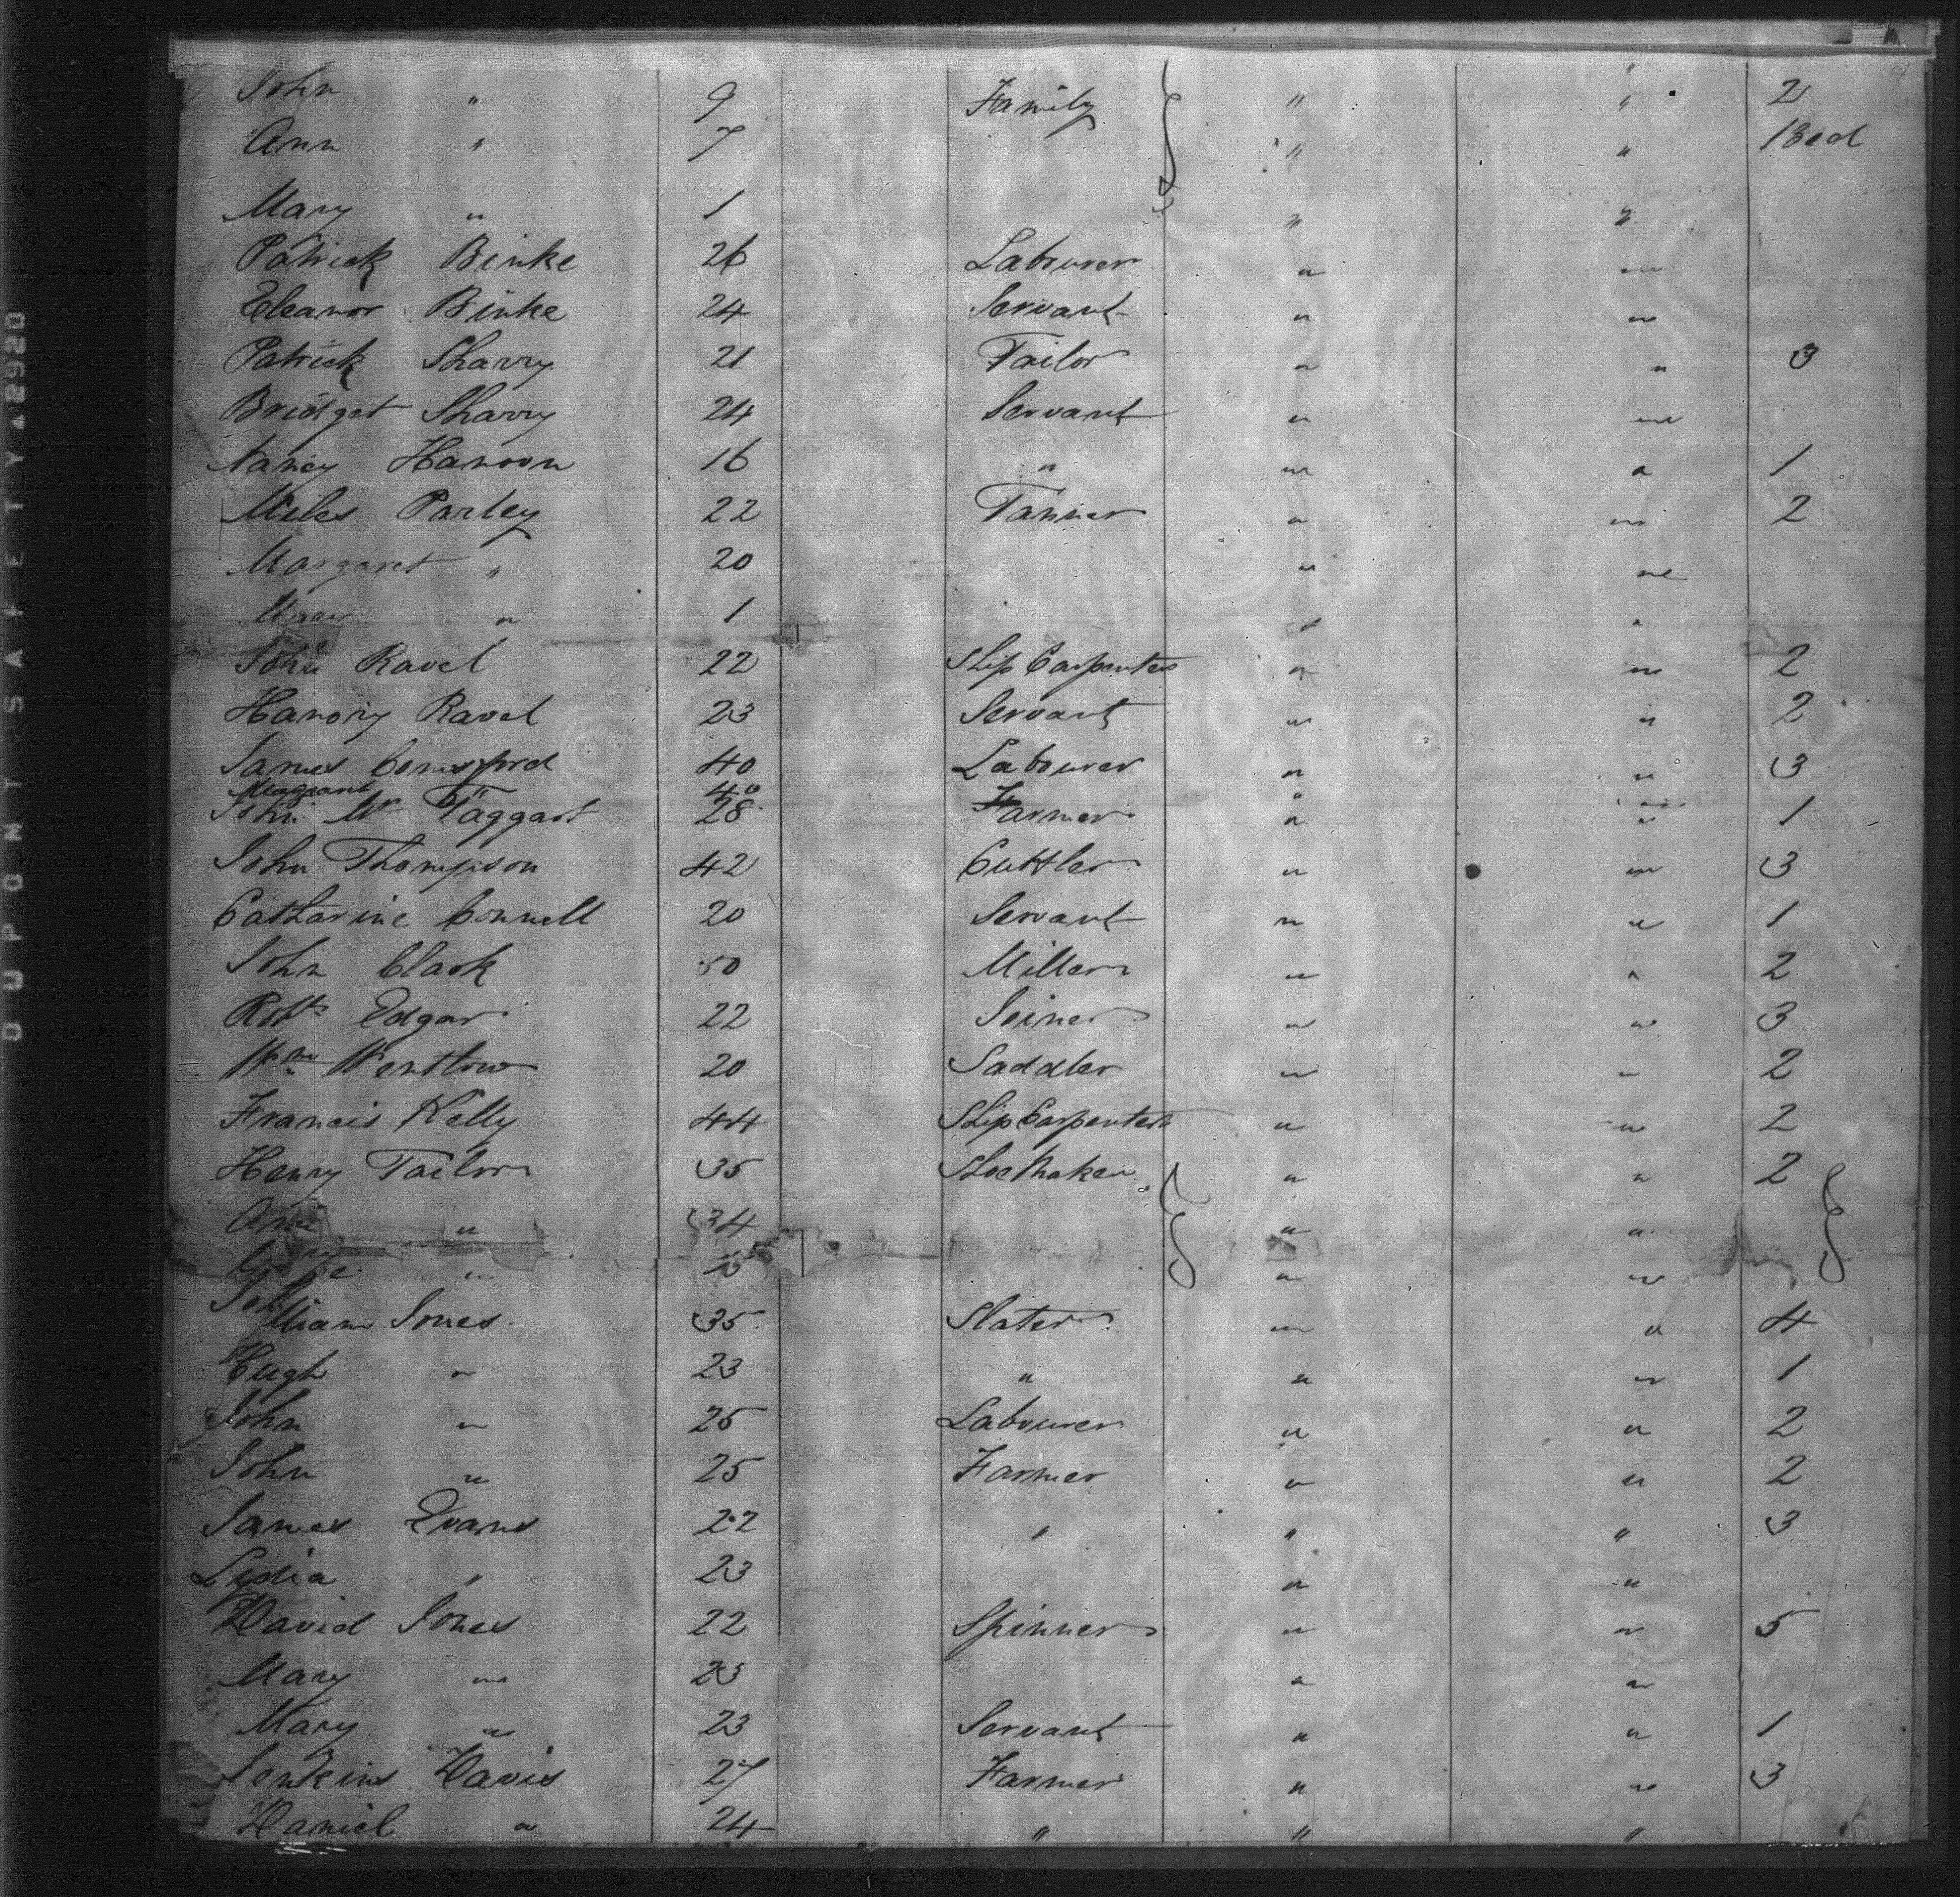 John " 9 Family " " 2
Ann " 7 " " 1 Bed
Mary " 1 " "
Patrick Binke 26 Labourer " "
Eleanor Binke 24 Servant " "
Patrick Sharry 21 Tailor " " 3
Bridget Sharry 24 Servant " "
Nancy Hanoon 16 " " " 1
Miles Parley 22 Tanner " " 2
Margaret " 20 " "
Mary " 1 " "
John Ravel 22 Ship Carpenter " " 2
Hanory Ravel 23 Servant " " 2
James Comesford 40 Labourer " " 3
" 40 " "
John Mc Taggart 28 Farmer " " 1
John Thompson 42 Cuttler " " 3
Catharine Connell 20 Servant " " 1
John Clark 50 Miller " " 2
Robt Edgar 22 Seiner " " 3
Wm Wentlow 20 Saddler " " 2
Francis Kelly 44 Ship Carpenter " " 2
Henry Tailor 35 Shoe Maker " " 2
Ann " 34 " "
" " "
William Jones 35 Slater " " 4
Hugh " 23 " " " 1
John " 25 Labourer " " 2
John " 25 Farmer " " 2
James Evans 22 " " " 3
Lydia " 23 " "
David Jones 22 Spinner " " 5
Mary " 23 " "
Mary " 23 Servant " " 1
Jenkins Davis 27 Farmer " " 3
Daniel " 24 " " "
DUPONT SAFETY ▲2920